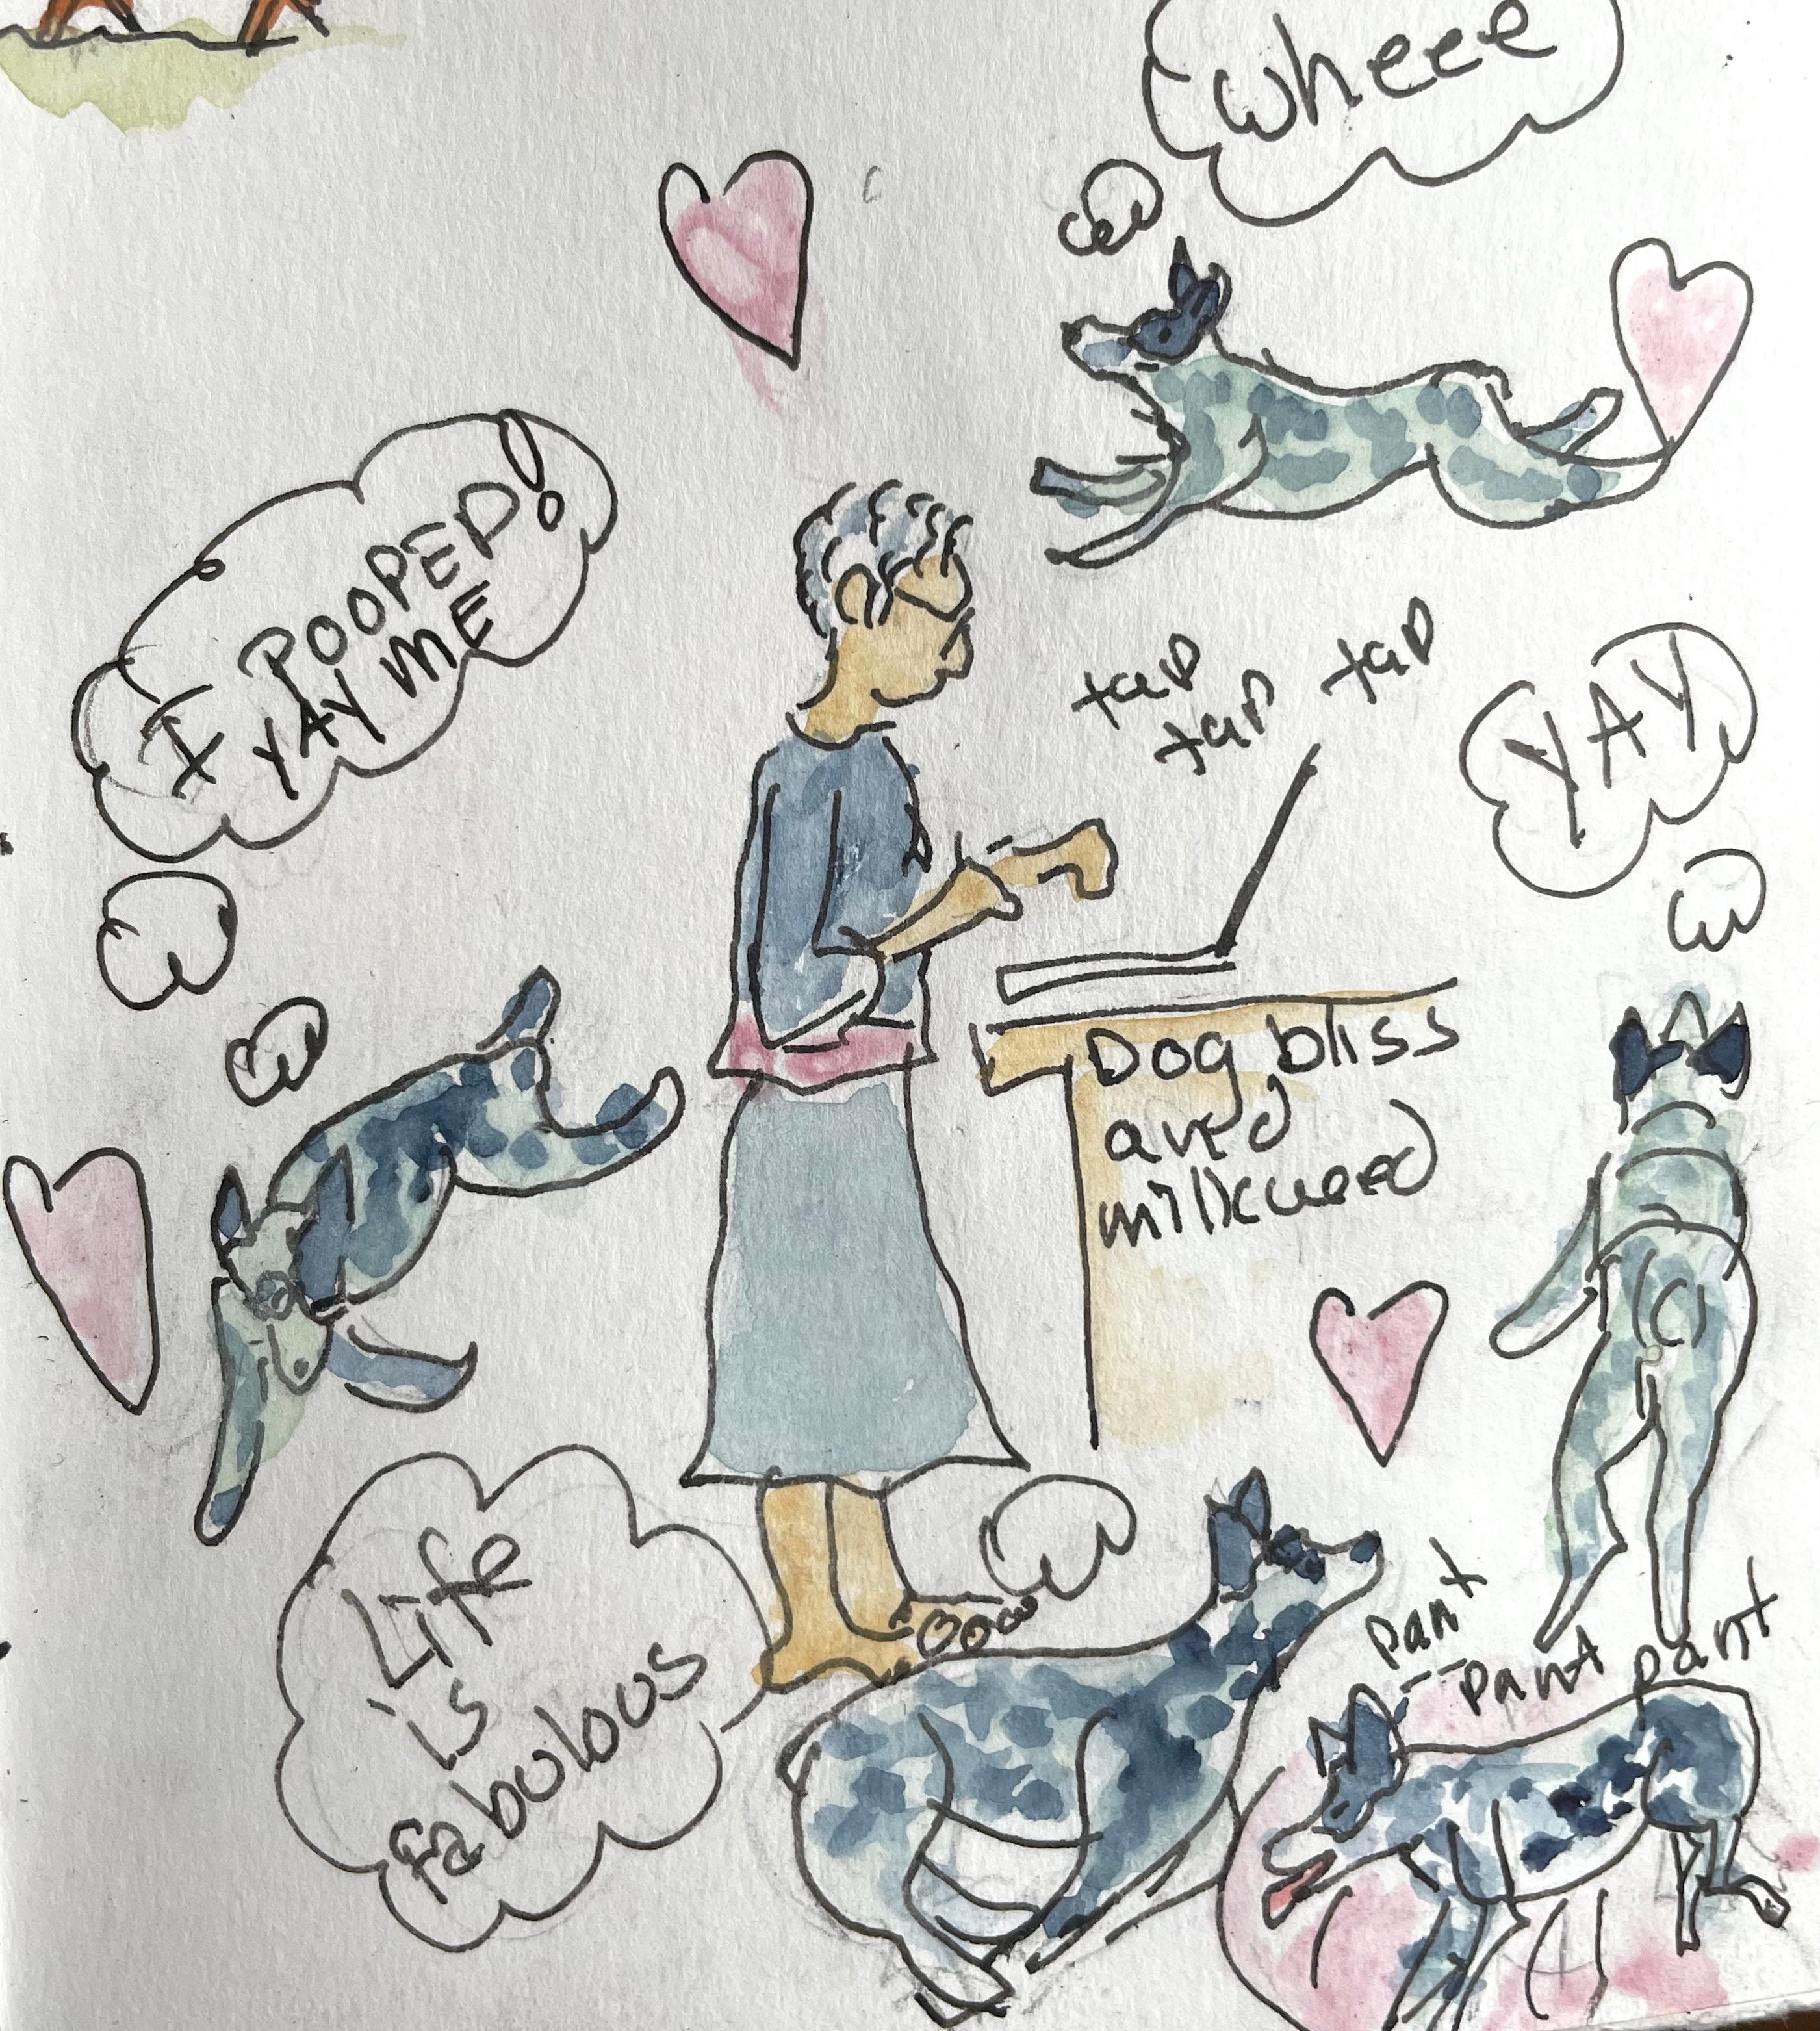 wheee
I POOPED!
YAY ME
tap
tap
tap
YAY
Dog bliss
and
milkweed
Life
is
fabulous
pant
pant
pant